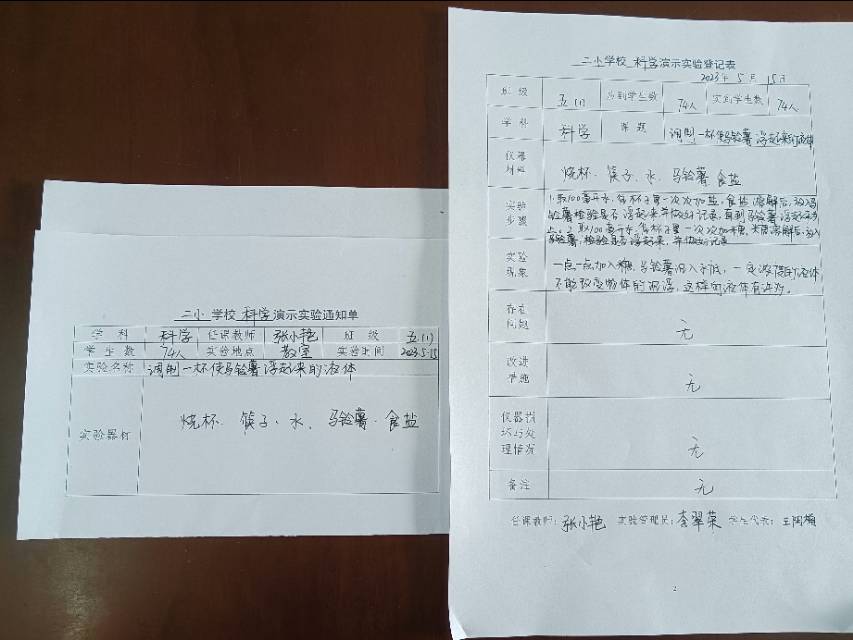 二小 学校 科学演示实验通知单
学 科 科学 任课教师 张小艳 班 级 五(1)
学 生 数 74人 实验地点 教室 实验时间 2023.5.15
实验名称 调制一杯使马铃薯浮起来的液体
实验器材 烧杯、筷子、水、马铃薯、食盐
二小学校 科学演示实验登记表
2023年 5月 15日
班 级 五(1) 应到学生数 74人 实到学生数 74人
学 科 科学 课 题 调制一杯使马铃薯浮起来的液体
仪器
材料
烧杯、筷子、水、马铃薯、食盐
实验
步骤
1.取100毫升水,每杯子里一次次加盐,食盐溶解后,放入马
铃薯检验是否浮起来并做好记录,直到马铃薯浮起来为
止。2.取100毫升水,每杯子里一次次加糖,
铃薯,检验是否浮起来,并做好记录
实验
现象
一点一点加入糖,马铃薯沉入水底,一定浓度的液体
才能改变物体的沉浮,这样的液体有许多。
存在
问题
无
改进
措施
无
仪器损
坏与处
理情况
无
备注 无
任课教师:张小艳 实验管理员:李翠荣 学生代表:
2